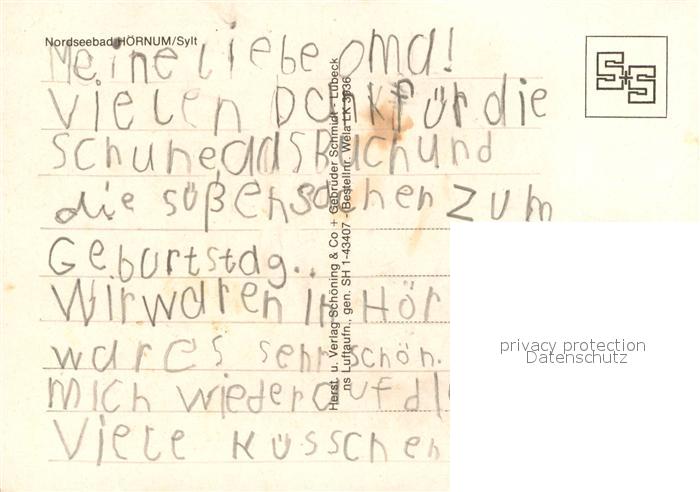 Nordseebad HÖRNUM/Sylt
Meine liebe Oma!
Vielen Dank für die
Schuhe das Buch und
die süßen sachen zum
Geburtstag..
Wir waren in Hör
war es sehr schön.
mich wieder auf di
Viele Küsschen
Herst. u. Verlag Schöning & Co + Gebrüder Schmidt - Lübeck
ns Luftaufn., gen. SH 1-43407 - (Bestellnr. Wela LK 3036
S+S
privacy protection
Datenschutz